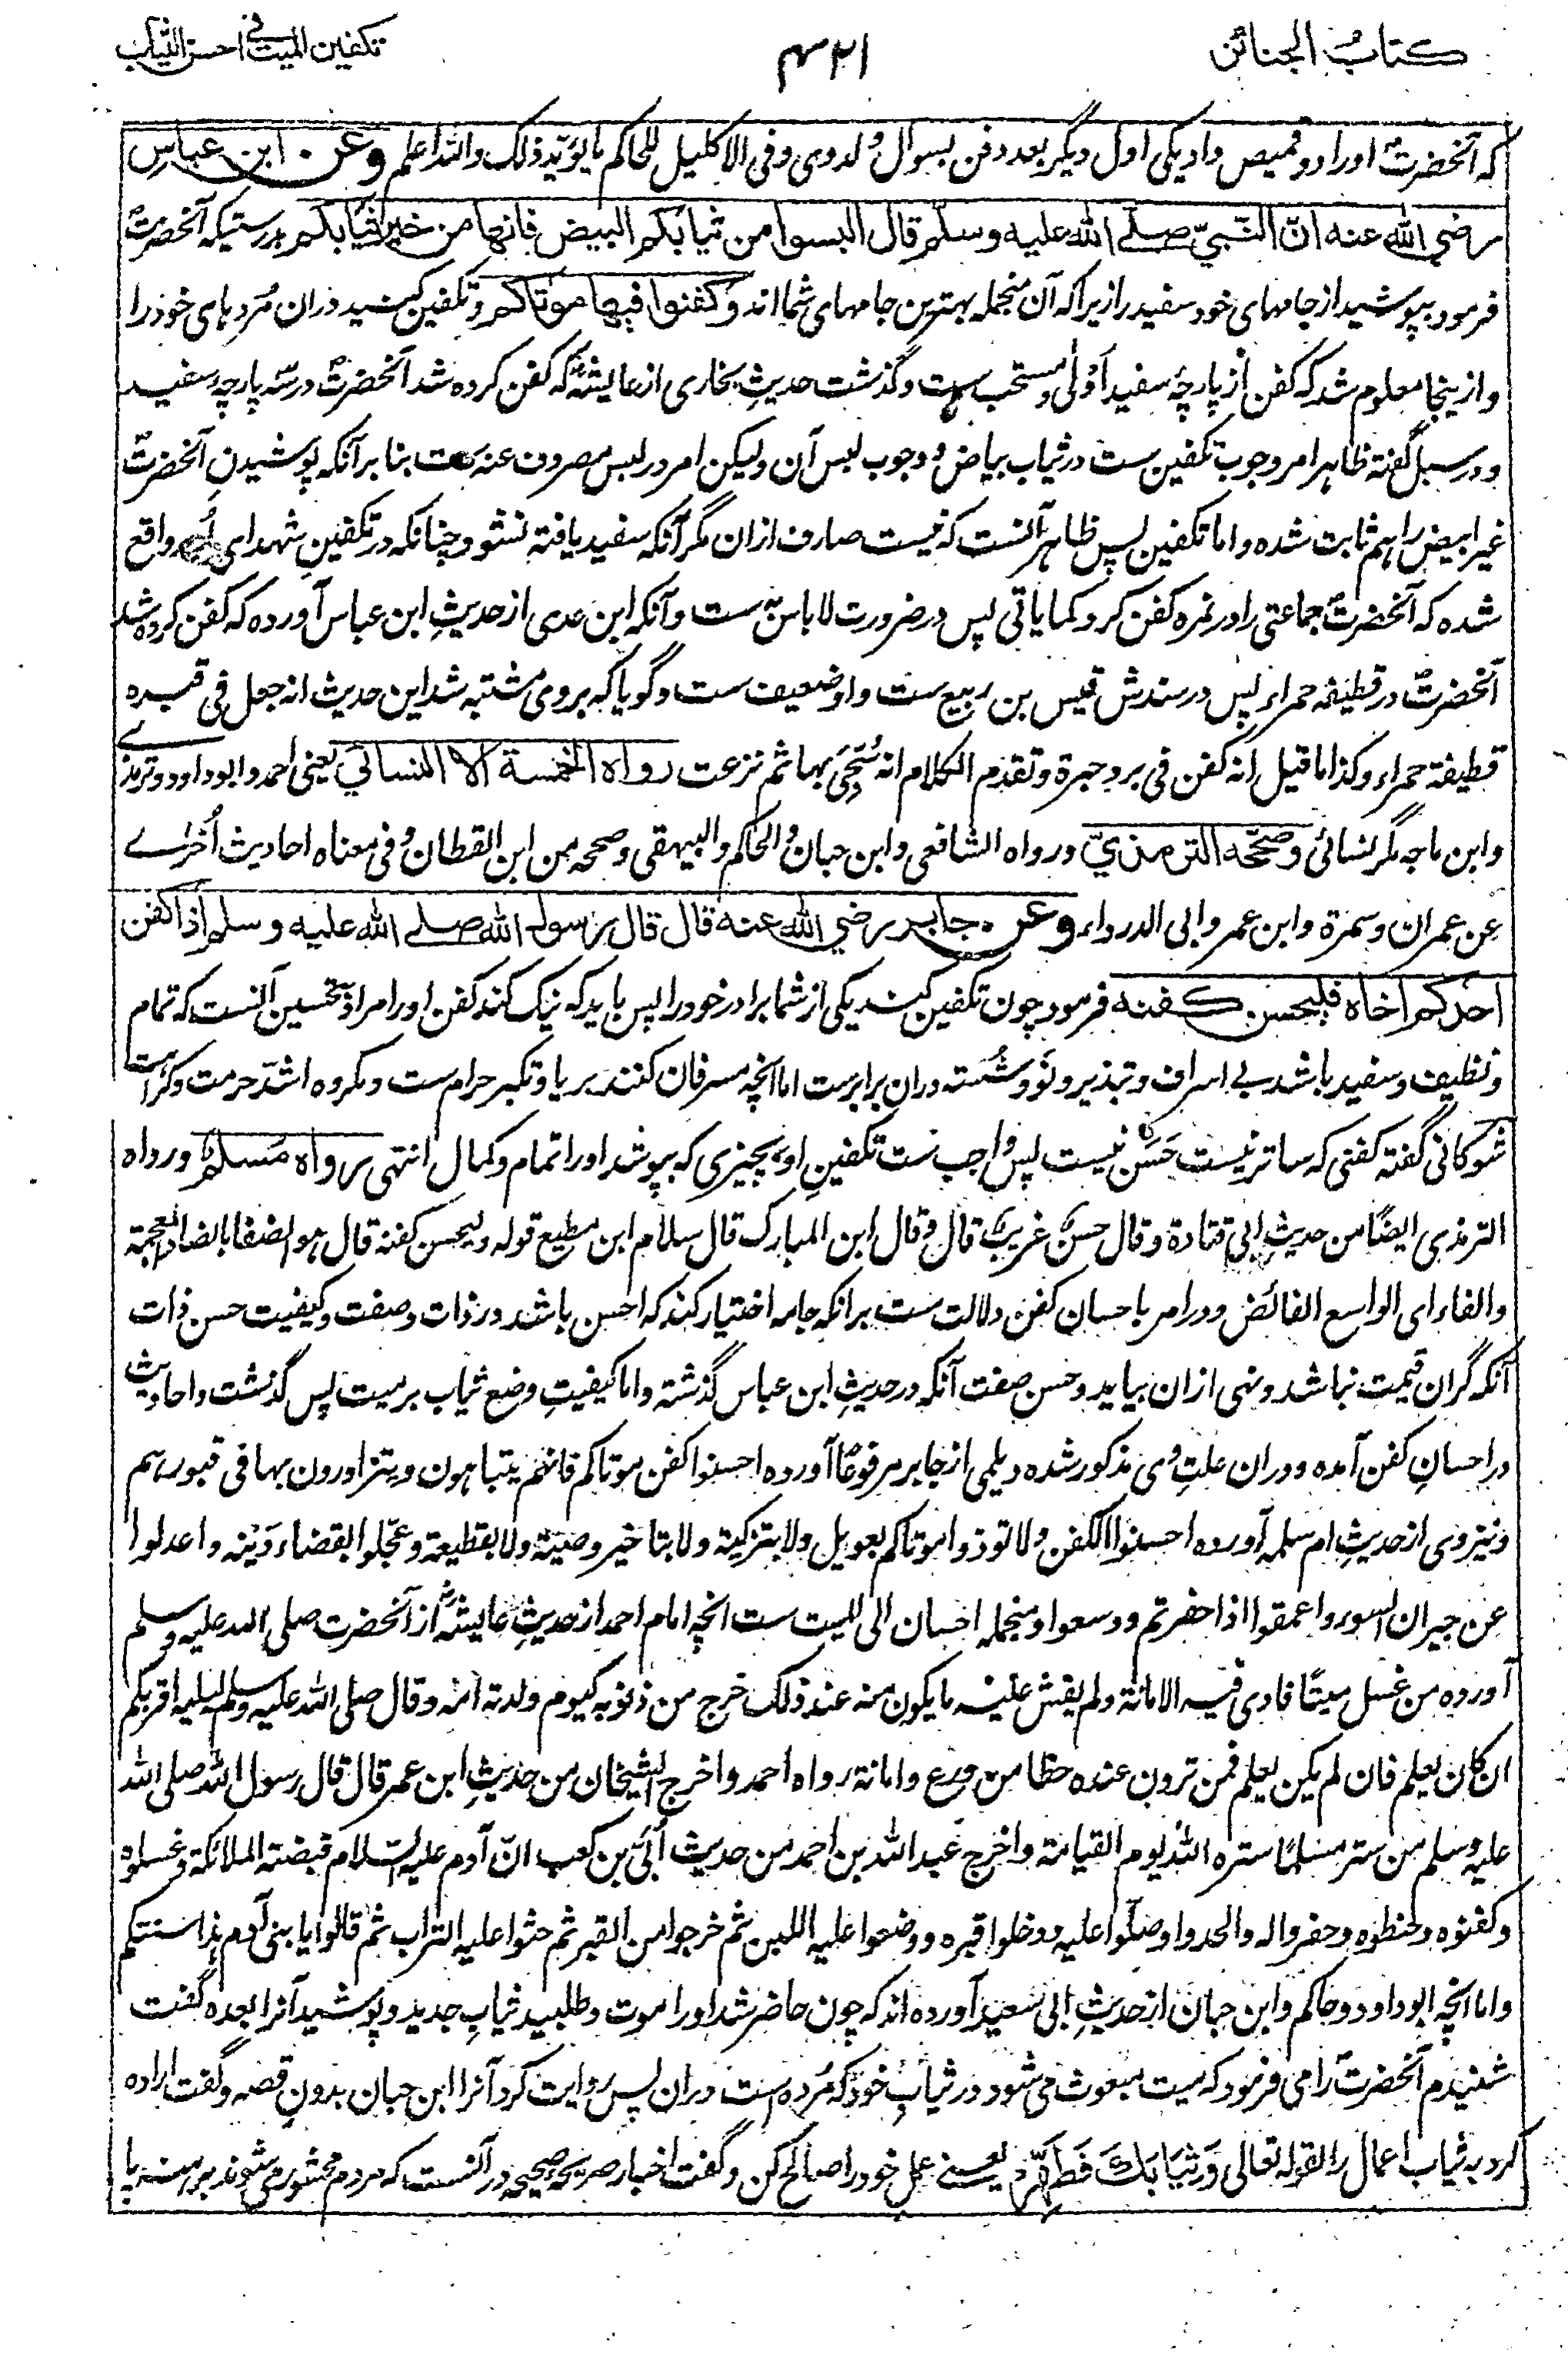 كتابُ الجنائز
۴۲۱
تكفين الميت في احسن الثياب
که آنحضرتؐ اورا دو قمیص داد یکی اول دیگر بعد دفن بسوال ولد وی وفی الاکلیل للحاکم ما یؤید ذلک والله اعلم وعن ابن عباس
رضي الله عنه انّ النّبيّ صلے الله عليه وسلم قال البسوا من ثيابكم البيض فانها من خير ثيابكم بدرستیکه آنحضرتؐ
فرمود بپوشید از جامهای خود سفید را زیرا که آن منجمله بهترین جامهای شما اند وكفنوا فيها موتاكم وتکفین کنید دران مُردهای خود را
وازینجا معلوم شد که کفن از پارچهٔ سفید اَولٰی ومستحب ست وگذشت حدیثِ بخاری از عایشهؓ که کفن کرده شد آنحضرتؐ در سه پارچه سفید
ودر سبل گفته ظاهر امر وجوب تکفین ست در ثیاب بیاض ووجوب لبس آن ولیکن امر در لبس مصروف عنه ست بنا بر آنکه پوشیدنِ آنحضرتؐ
غیر ابیض را هم ثابت شده واما تکفین پس ظاهر آنست که نیست صارف ازان مگر آنکه سفید یافته نشود چنانکه در تکفینِ شهدای اُحد واقع
شده که آنحضرتؐ جماعتی را در نمره کفن کرد کما یاتی پس در ضرورت لا باس به ست وآنکه ابن عدی از حدیثِ ابن عباس آورده که کفن کرده شد
آنحضرتؐ در قطیفه حمراء پس در سندش قیس بن ربیع ست واو ضعیف ست وگویا که بر وی مشتبه شد این حدیث انه جعل فی قبره
قطیفة حمراء وکذا ما قیل انه کفن فی برد حبرة وتقدم الکلام انه سُجّی بها ثم نزعت رواه الخمسة الا النسائي یعنی احمد وابوداود وترمذی
وابن ماجه مگر نسائی وصحّحه الترمذيّ ورواه الشافعی وابن حبان والحاکم والبیهقی وصححه من ابن القطان وفی معناه احادیث اُخرٰے
عن عمران وسمرة وابن عمر وابی الدرداء وعن جابر رضي الله عنه قال قال رسول الله صلے الله عليه وسلم اذا كفن
احدكم اخاه فليحسن كفنه فرمود چون تکفین کند یکی از شما برادر خود را پس باید که نیک کند کفن او را مراد بتحسین آنست که تمام
ونظیف وسفید باشد بے اسراف وتبذیر ونَو وشُسته دران برابرست اما آنچه مسرفان کنند بریا وتکبر حرام ست ومکروه اشدّ حرمت وکراهت
شوکانی گفته کفنی که ساتر نیست حَسَن نیست پس واجب ست تکفینِ او بچیزی که بپوشد او را تمام وکمال انتهی رواه مُسلمؒ ورواه
الترمذی ایضًا من حدیثِ ابی قتادة وقال حسنٌ غریبٌ قال وقال ابن المبارک قال سلام ابن مطیع قوله ولیحسن کفنه قال هو الضفا بالضاد المعجمة
والفاء ای الواسع الفائض ودر امر باحسان کفن دلالت ست بر انکه جامه اختیار کند که احسن باشد در ذات وصفت وکیفیت حسن ذات
آنکه گران قیمت نباشد ونهی ازان بیاید وحسن صفت آنکه در حدیثِ ابن عباس گذشته واما کیفیتِ وضع ثیاب بر میت پس گذشت واحادیث
در احسانِ کفن آمده ودران علتِ وی مذکور شده دیلمی از جابر مرفوعًا آورده احسنوا کفن موتاکم فانهم یتباهون ویتزاورون بها فی قبورهم
ونیز وی از حدیثِ ام سلمه آورده احسنوا الکفن ولا توذوا موتاکم بعویل ولا بتزکیة ولا بتاخیر وصیة ولا بقطیعة وعجّلوا بقضاء دَینه واعدلوا
عن جیران السوء واعمقوا اذا حفرتم ووسعوا ومنجمله احسان الی المیت ست آنچه امام احمد از حدیثِ عایشهؓ از آنحضرت صلی الله علیه وسلم
آورده من غسل میتًا فادی فیه الامانة ولم یفش علیه ما یکون منه عند ذلک خرج من ذنوبه کیوم ولدته امّه وقال صلی الله علیه وسلم لیلیه اقربکم
ان کان یعلم فان لم یکن یعلم فمن ترون عنده حظا من ورع وامانة رواه احمد واخرج الشیخان من حدیثِ ابن عمر قال قال رسول الله صلی الله
علیه وسلم من ستر مسلمًا ستره اللهُ یوم القیامة واخرج عبد الله بن احمد من حدیث اُبَیّ بن کعب انّ آدم علیه السّلام قبضته الملائکة وغسلوه
وکفنوه وحنطوه وحفروا له والحدوا وصلّوا علیه ودخلوا قبره ووضعوا علیه اللبن ثم خرجوا من القبر ثم حثوا علیه التراب ثم قالوا یا بنی آدم هذا سنتکم
واما آنچه ابوداود وحاکم وابن حبان از حدیثِ ابی سعید آورده اند که چون حاضر شد او را موت وطلبید ثیابِ جدید وپوشید آنرا بعده گفت
شنیدم آنحضرتؐ را می فرمود که میت مبعوث می شود در ثیابِ خود که مُرده است دران پس روایت کرد آنرا ابن حبان بدونِ قصه وگفت اراده
کرد به ثیاب اعمال را لقوله تعالی وَثِيَابَكَ فَطَهِّرْ یعنے عمل خود را صالح کن وگفت اخبار صریحه صحیحه در آنست که مردم محشور می شوند برهنه پا